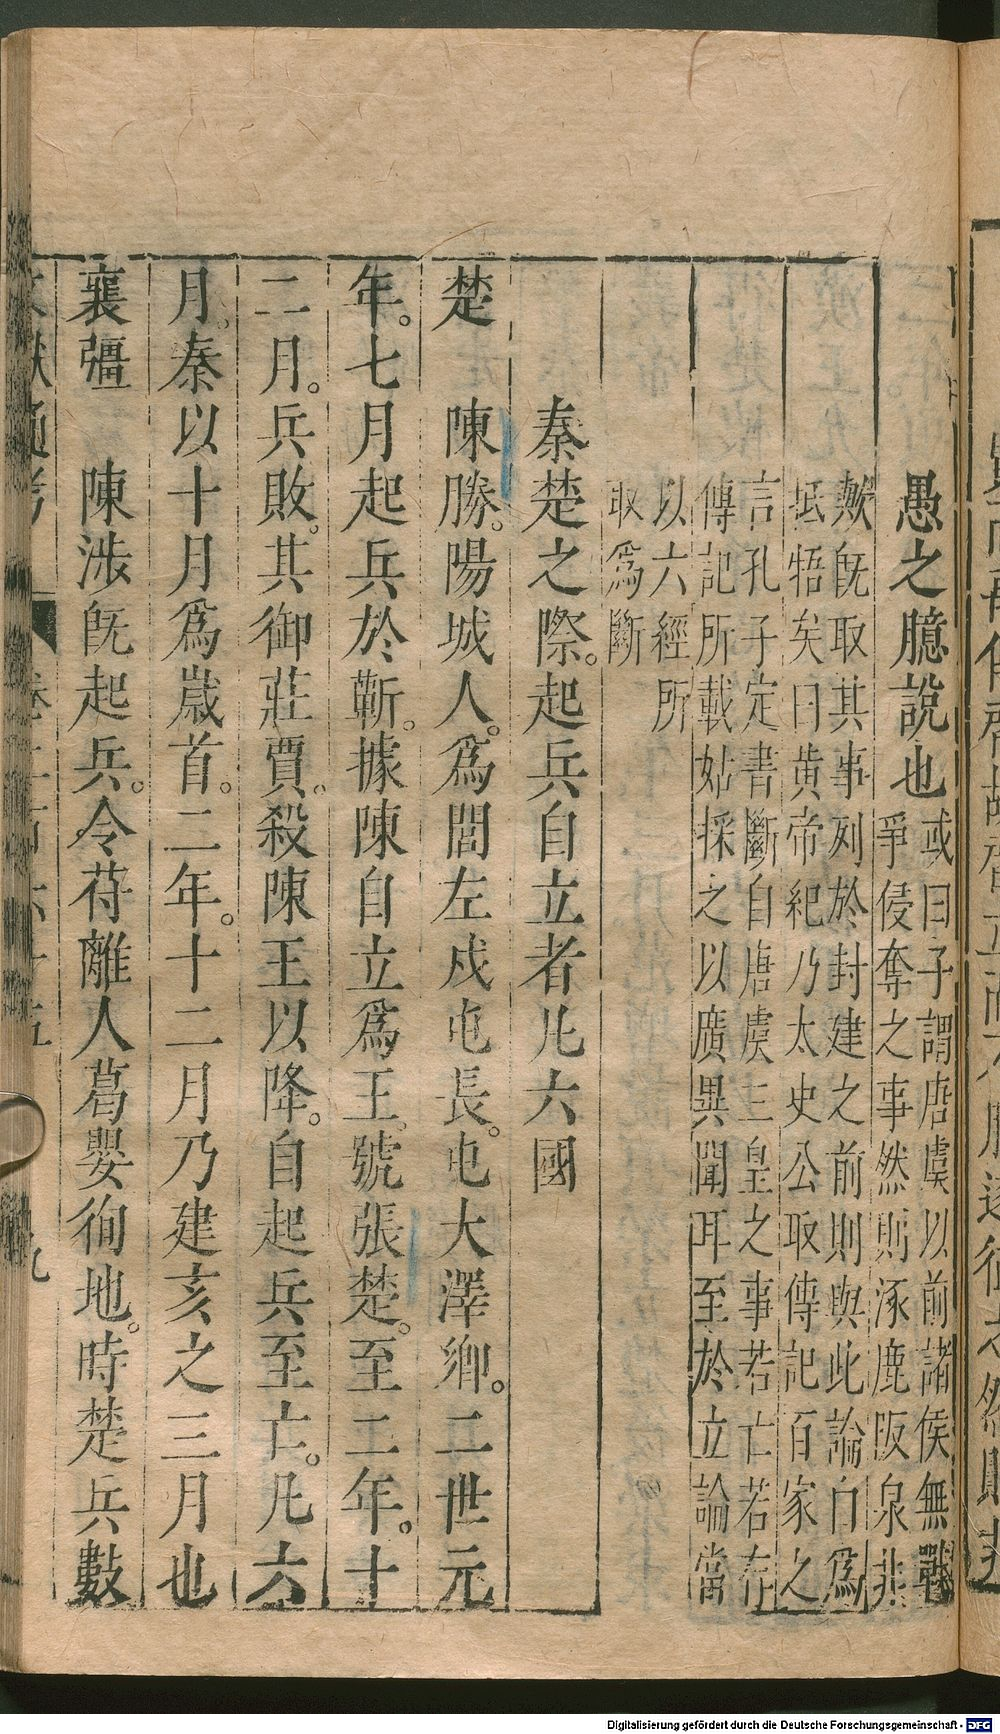 愚之臆說也
或曰子謂唐虞以前諸侯無戰
爭侵奪之事然則涿鹿阪泉非
歟旣取其事列於封建之前則與此論自爲
牴牾矣曰黄帝紀乃太史公取傳記百家之
言孔子定書斷自唐虞三皇之事若亡若存
傳記所載姑採之以廣異聞耳至於立論當
以六經所
取爲斷
秦楚之際。起兵自立者凡六國
楚　陳勝。陽城人。爲閭左戍屯長。屯大澤鄉。二世元
年。七月起兵於蘄。據陳自立爲王。號張楚。至二年。十
二月。兵敗。其御莊賈。殺陳王以降。自起兵至亡。凡六
月。秦以十月爲歳首。二年。十二月乃建亥之三月也
襄彊　陳渉旣起兵。令苻離人葛嬰徇地。時楚兵數
文獻通考　卷二百六十五　九
Digitalisierung gefördert durch die Deutsche Forschungsgemeinschaft - DFG